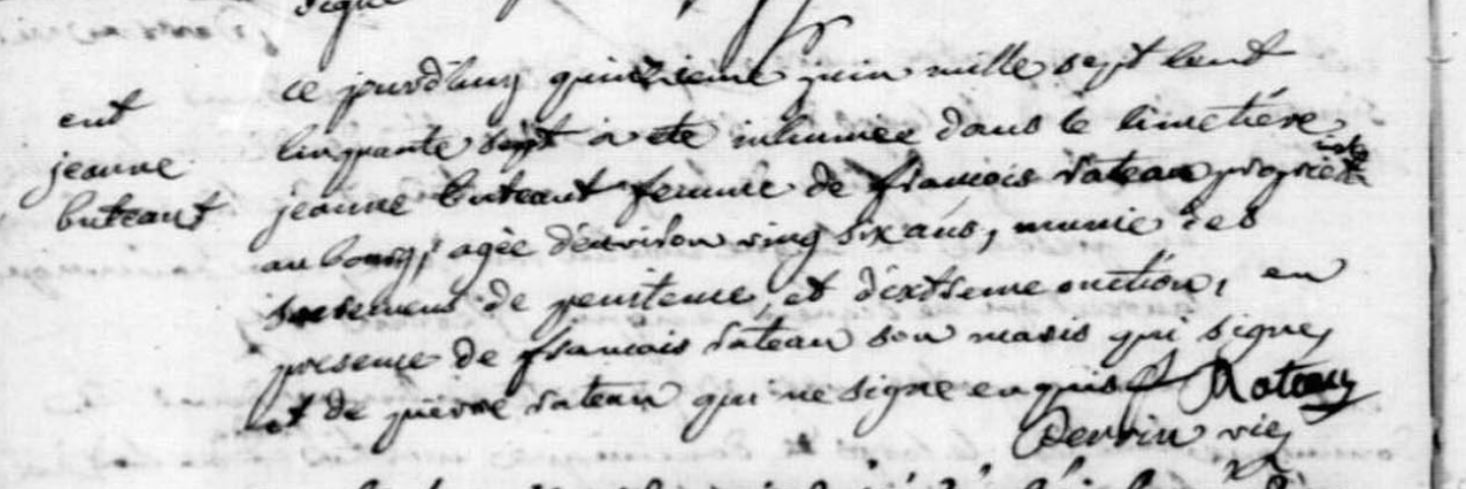 signé
ce jourd'huy quinzieme juin mille sept cent
cinquante sept a ete inhumée dans le cimetière
jeanne buteaut femme de francois rateau
au bourg, agée d'environ ving six ans, munie des
sacremens de penitence, et d'extreme onction, en
presence de francois rateau son maris qui signe,
et de pierre rateau qui ne signe enquis f Rateau
Perrin vic
ent
jeanne
buteaut